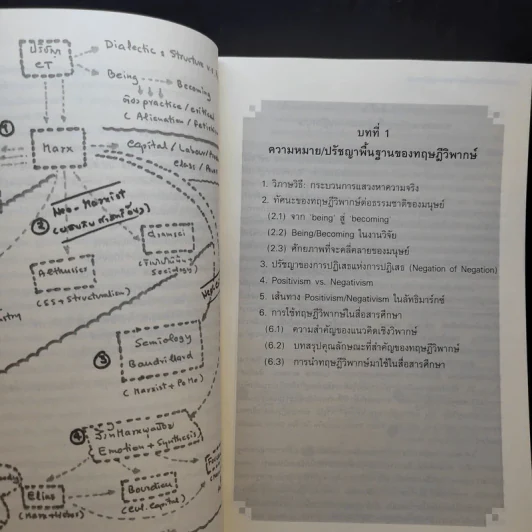 ปรัชญา
CT
Dialectic = Structure v.s.
Being Becoming
ต้อง practice/critical
(Alienation/Fetishism
①
Marx
Capital/Labour/
Class/Power
Neo-Marxist
②
Gramsci
Althusser
(SS+Structuralism)
③
Semiology
Baudrillard
(Marxist+PoMo)
④
Emotion + Synthesis)
Elias
(Marx+Weber)
Bourdieu
(Cul. Capital)
บทที่ 1
ความหมาย/ปรัชญาพื้นฐานของทฤษฎีวิพากษ์
1. วิภาษวิธี: กระบวนการแสวงหาความจริง
2. ทัศนะของทฤษฎีวิพากษ์ต่อธรรมชาติของมนุษย์
(2.1) จาก 'being' สู่ 'becoming'
(2.2) Being/Becoming ในงานวิจัย
(2.3) ศักยภาพที่จะคลี่คลายของมนุษย์
3. ปรัชญาของการปฏิเสธแห่งการปฏิเสธ (Negation of Negation)
4. Positivism vs. Negativism
5. เส้นทาง Positivism/Negativism ในลัทธิมาร์กซ์
6. การใช้ทฤษฎีวิพากษ์ในสื่อสารศึกษา
(6.1) ความสำคัญของแนวคิดเชิงวิพากษ์
(6.2) บทสรุปคุณลักษณะที่สำคัญของทฤษฎีวิพากษ์
(6.3) การนำทฤษฎีวิพากษ์มาใช้ในสื่อสารศึกษา